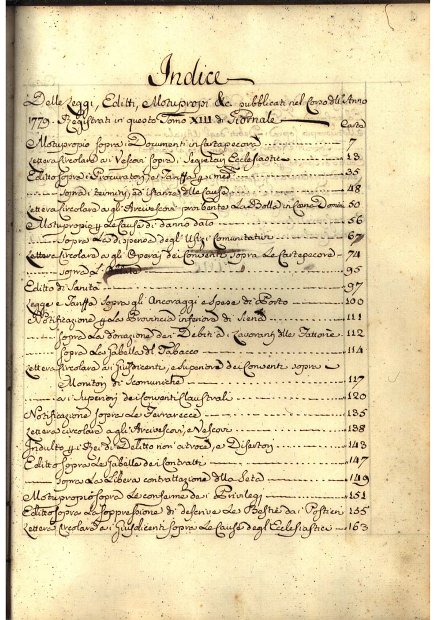 Indice
Delle Leggi, Editti, Motupropi &c. pubblicati nel Corso dell'Anno
1779. Registrati in questo Tomo XIII di Giornale
Carte
Motuproprio sopra i Documenti in Cartapecora 7
Lettera Circolare a i Vescovi sopra i Segretari Ecclesiastici 13
Editto sopra i Procuratori, e Tariffa 35
sopra i termini, ed istanze delle Cause 48
Lettera Circolare agli Arcivescovi proibente La Bolla in Coena Domini 50
Motuproprio p. Le Cause di danno dato 56
sopra La dispensa degl'Ufizi Comunitativi 67
Lettera Circolare agli Operaj dei Conventi sopra Le Cartepecore 74
sopra 95
Editto di Sanità 97
Legge e Tariffa sopra gli Ancoraggi e Spese di Porto 100
Notificazione p. La Provincia inferiore di Siena 111
sopra La dei Debiti a Lavoranti delle Fattorie 112
sopra La Gabella del Tabacco 114
Lettera Circolare a i Giusdicenti, e Superiori dei Conventi sopra
Monitori di Scomuniche 117
a i Superiori dei Conventi Claustrali 120
Notificazione sopra Le Ferrarecce 135
Lettera Circolare agli Arcivescovi, e Vescovi 138
Indulto p. i Rei di Delitto non atroce, e Disertori 143
Editto sopra Le Gabelle dei Contratti 147
sopra La Libera contrattazione della Seta 149
Motuproprio sopra Le conferme de i Privilegi 151
Editto sopra La soppressione di descrive Le Bestie da i Postieri 155
Lettera Circolare a i Giusdicenti sopra Le Cause degl'Ecclesiastici 163